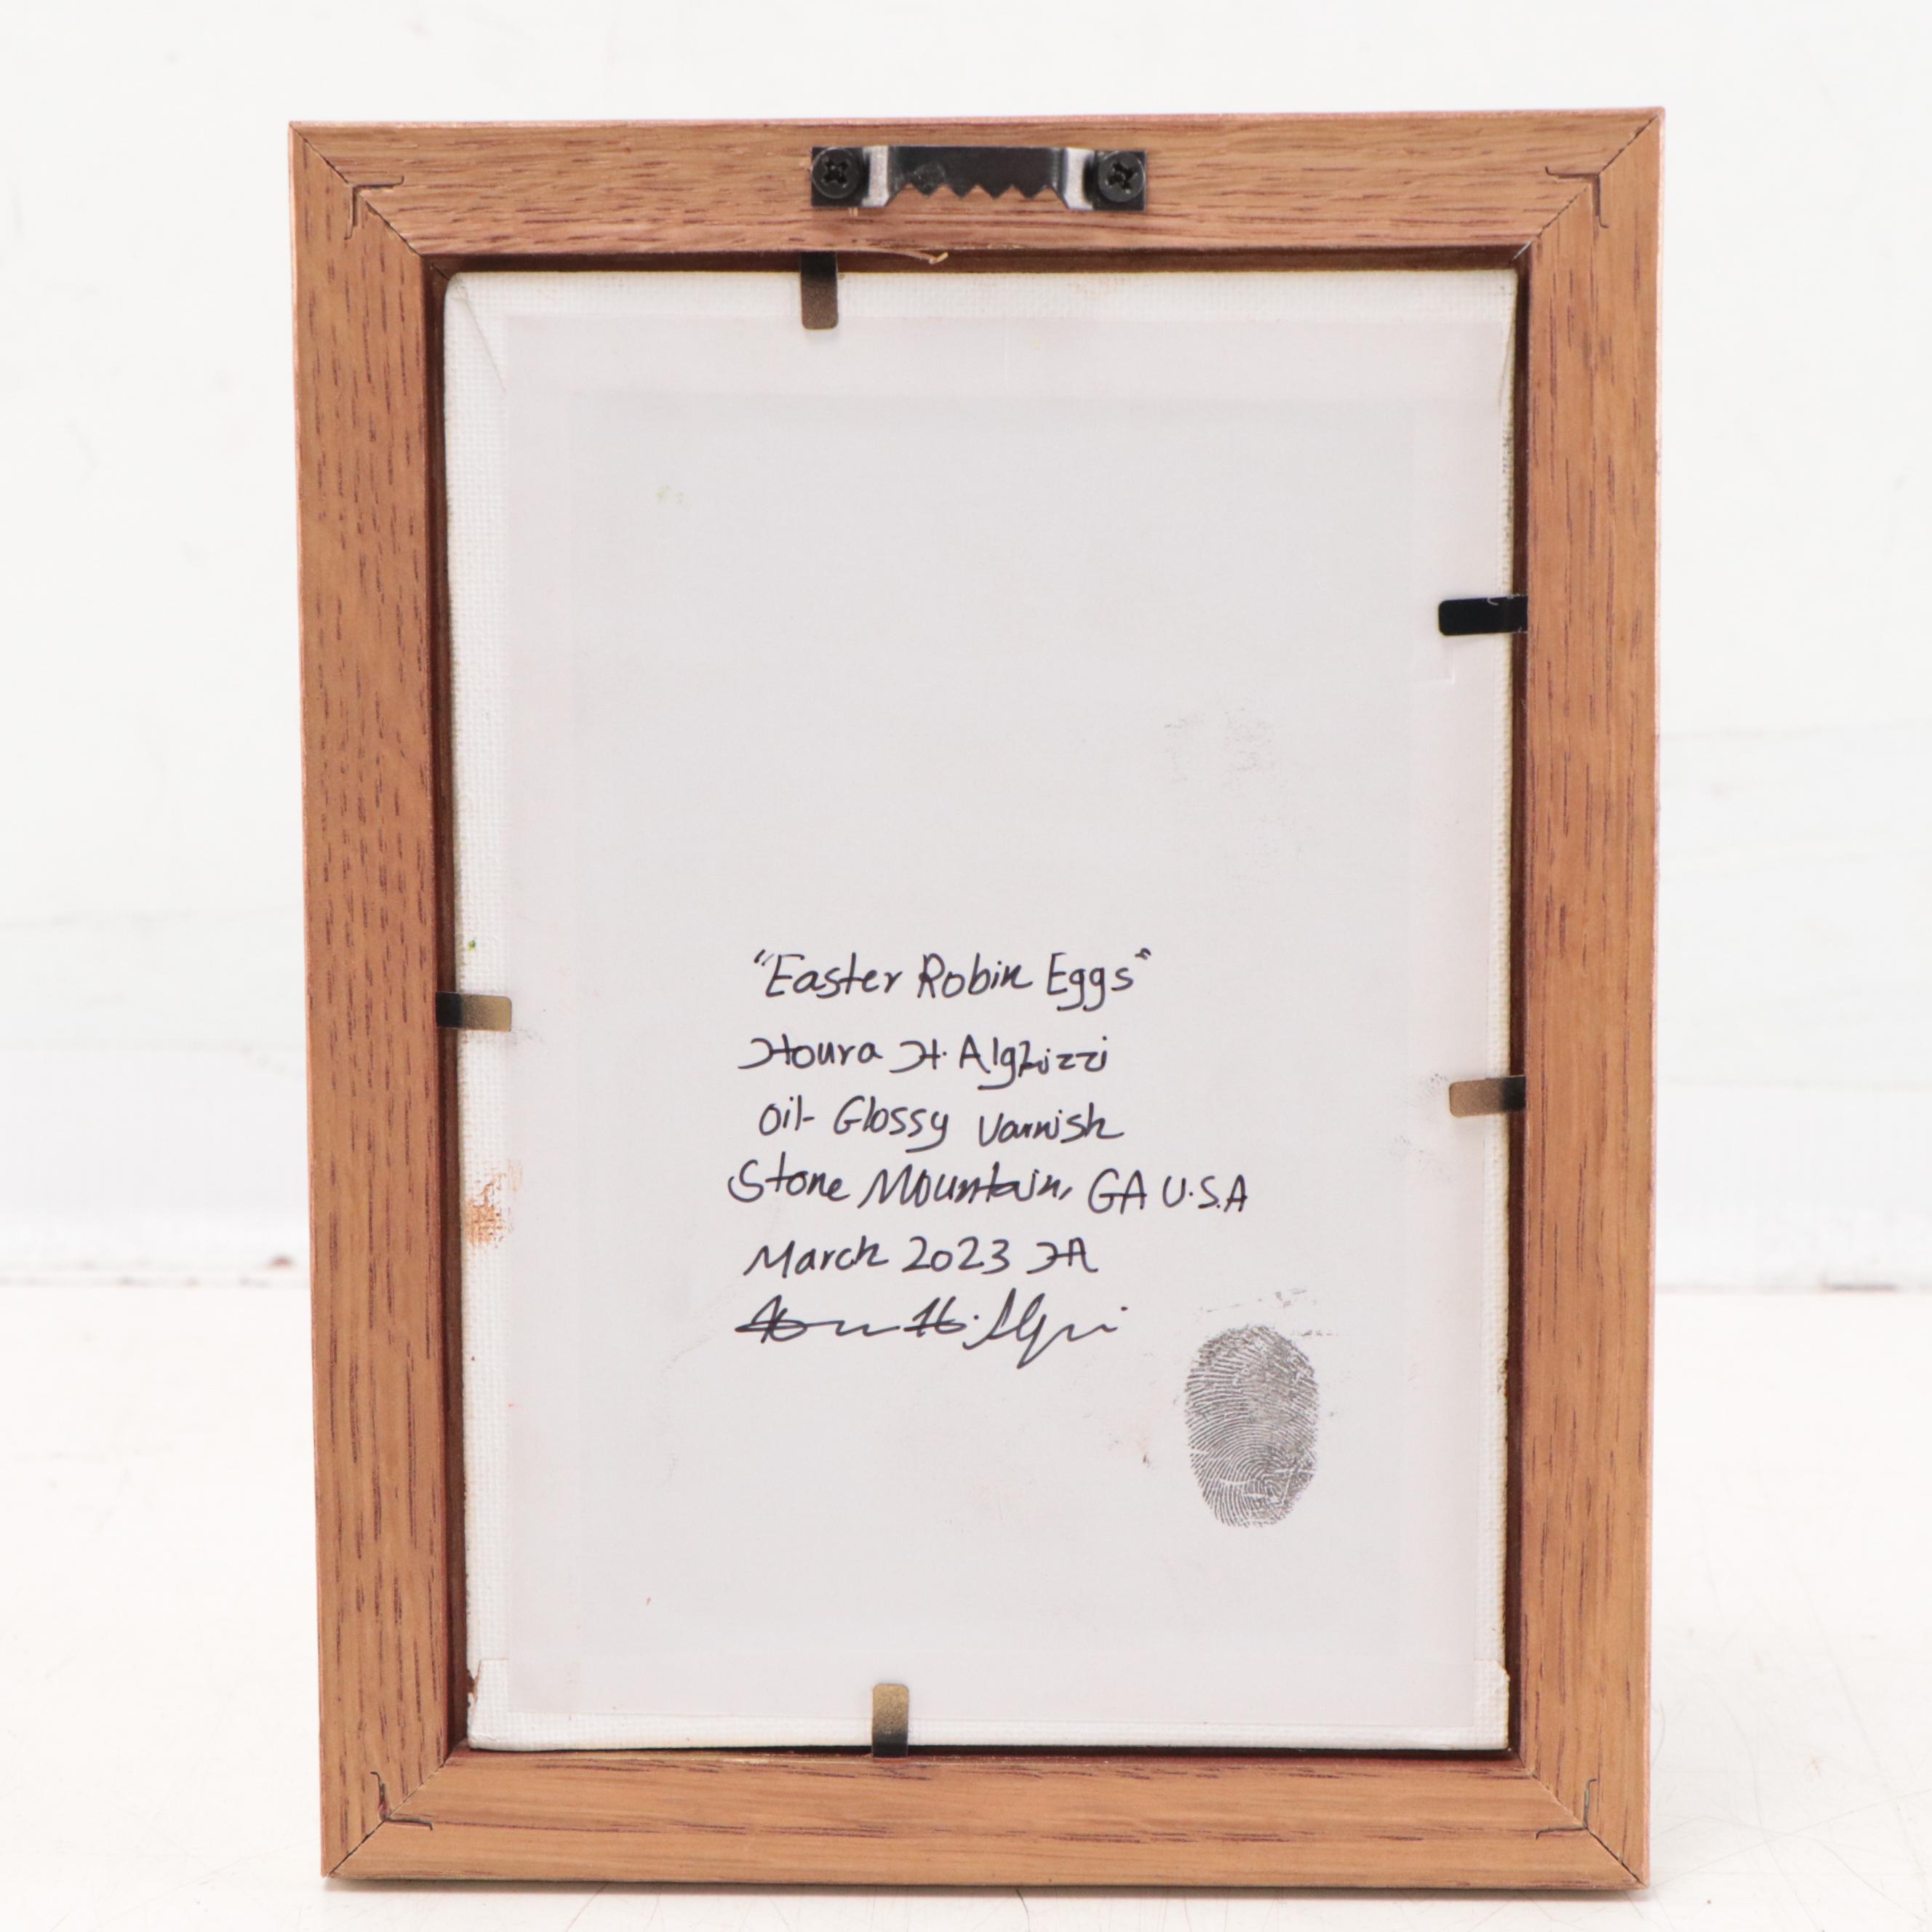 "Easter Robin Eggs"
Houra H. Alghizzi
Oil- Glossy Varnish
Stone Mountain, GA U.S.A
March 2023 HA